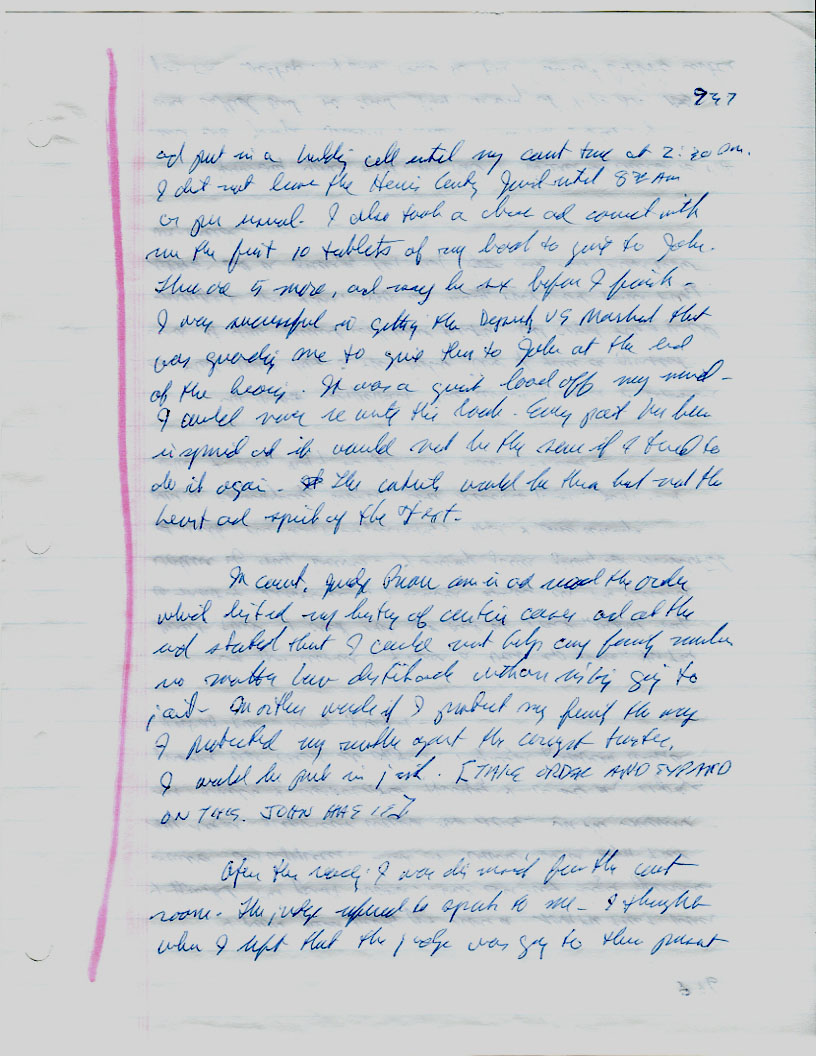 947
and put in a holding cell until my court time at 2:30 pm.
I did not leave the Harris County Jail until 8 AM
as per usual. I also took a chance and with
me the first 10 tablets of my book to give to John.
There are 5 more, and may be six before I finish -
I was successful in getting the Deputy US Marshal that
was guarding me to give them to John at the end
of the hearing. It was a great load off my mind -
I could never re write this book. Every part has been
inspired and it would not be the same if I tried to
do it again. The would be there but not the
heart and spirit of the -
In court, Judge came in and read the order
which listed my history of cases and at the
end stated that I could not help any family member
no matter how without risking going to
jail - In other words if I protect my family the way
I protected my mother against the corrupt trustee,
I would be put in jail. [TAKE ORDER AND EXPAND
ON THIS. JOHN HAS IT]
After the reading I was dismissed from the court
room. The judge refused to speak to me - I thought
when I left that the judge was going to then